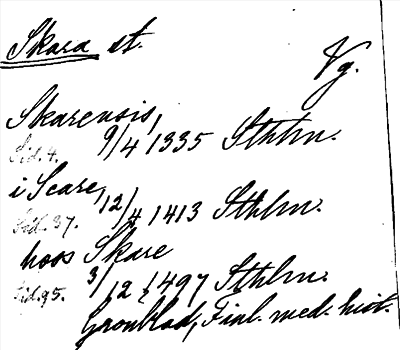 Skara st.
Vg.
Skarensis,
Sid. 4. 9/4 1335 Sthlm.
i Scare, 12/4 1413 Sthlm.
Sid. 37.
hoos Skare
Sid. 95. 3/12 1497 Sthlm.
Grönblad, Finl. med. hist.